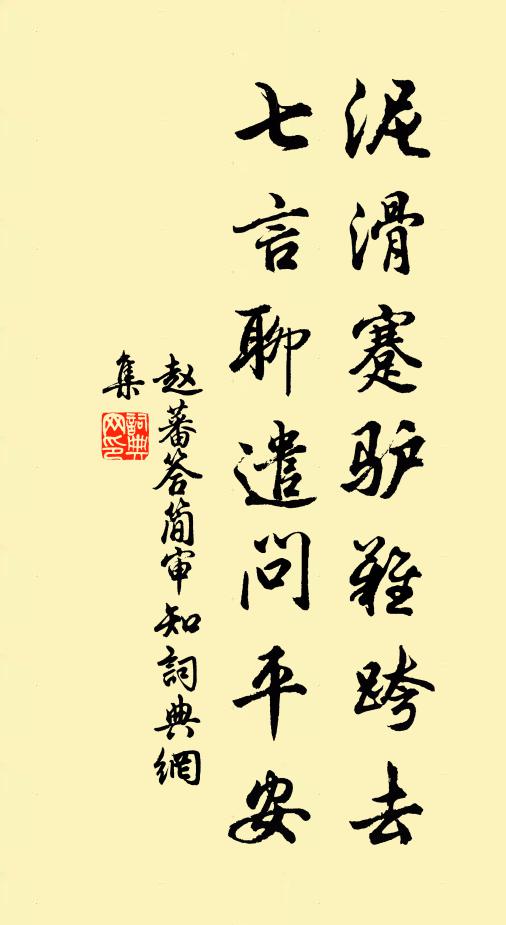 泥滑蹇驴难跨去
七言聊遣问平安
赵蕃答简审知詞典網
集
詞典
网印